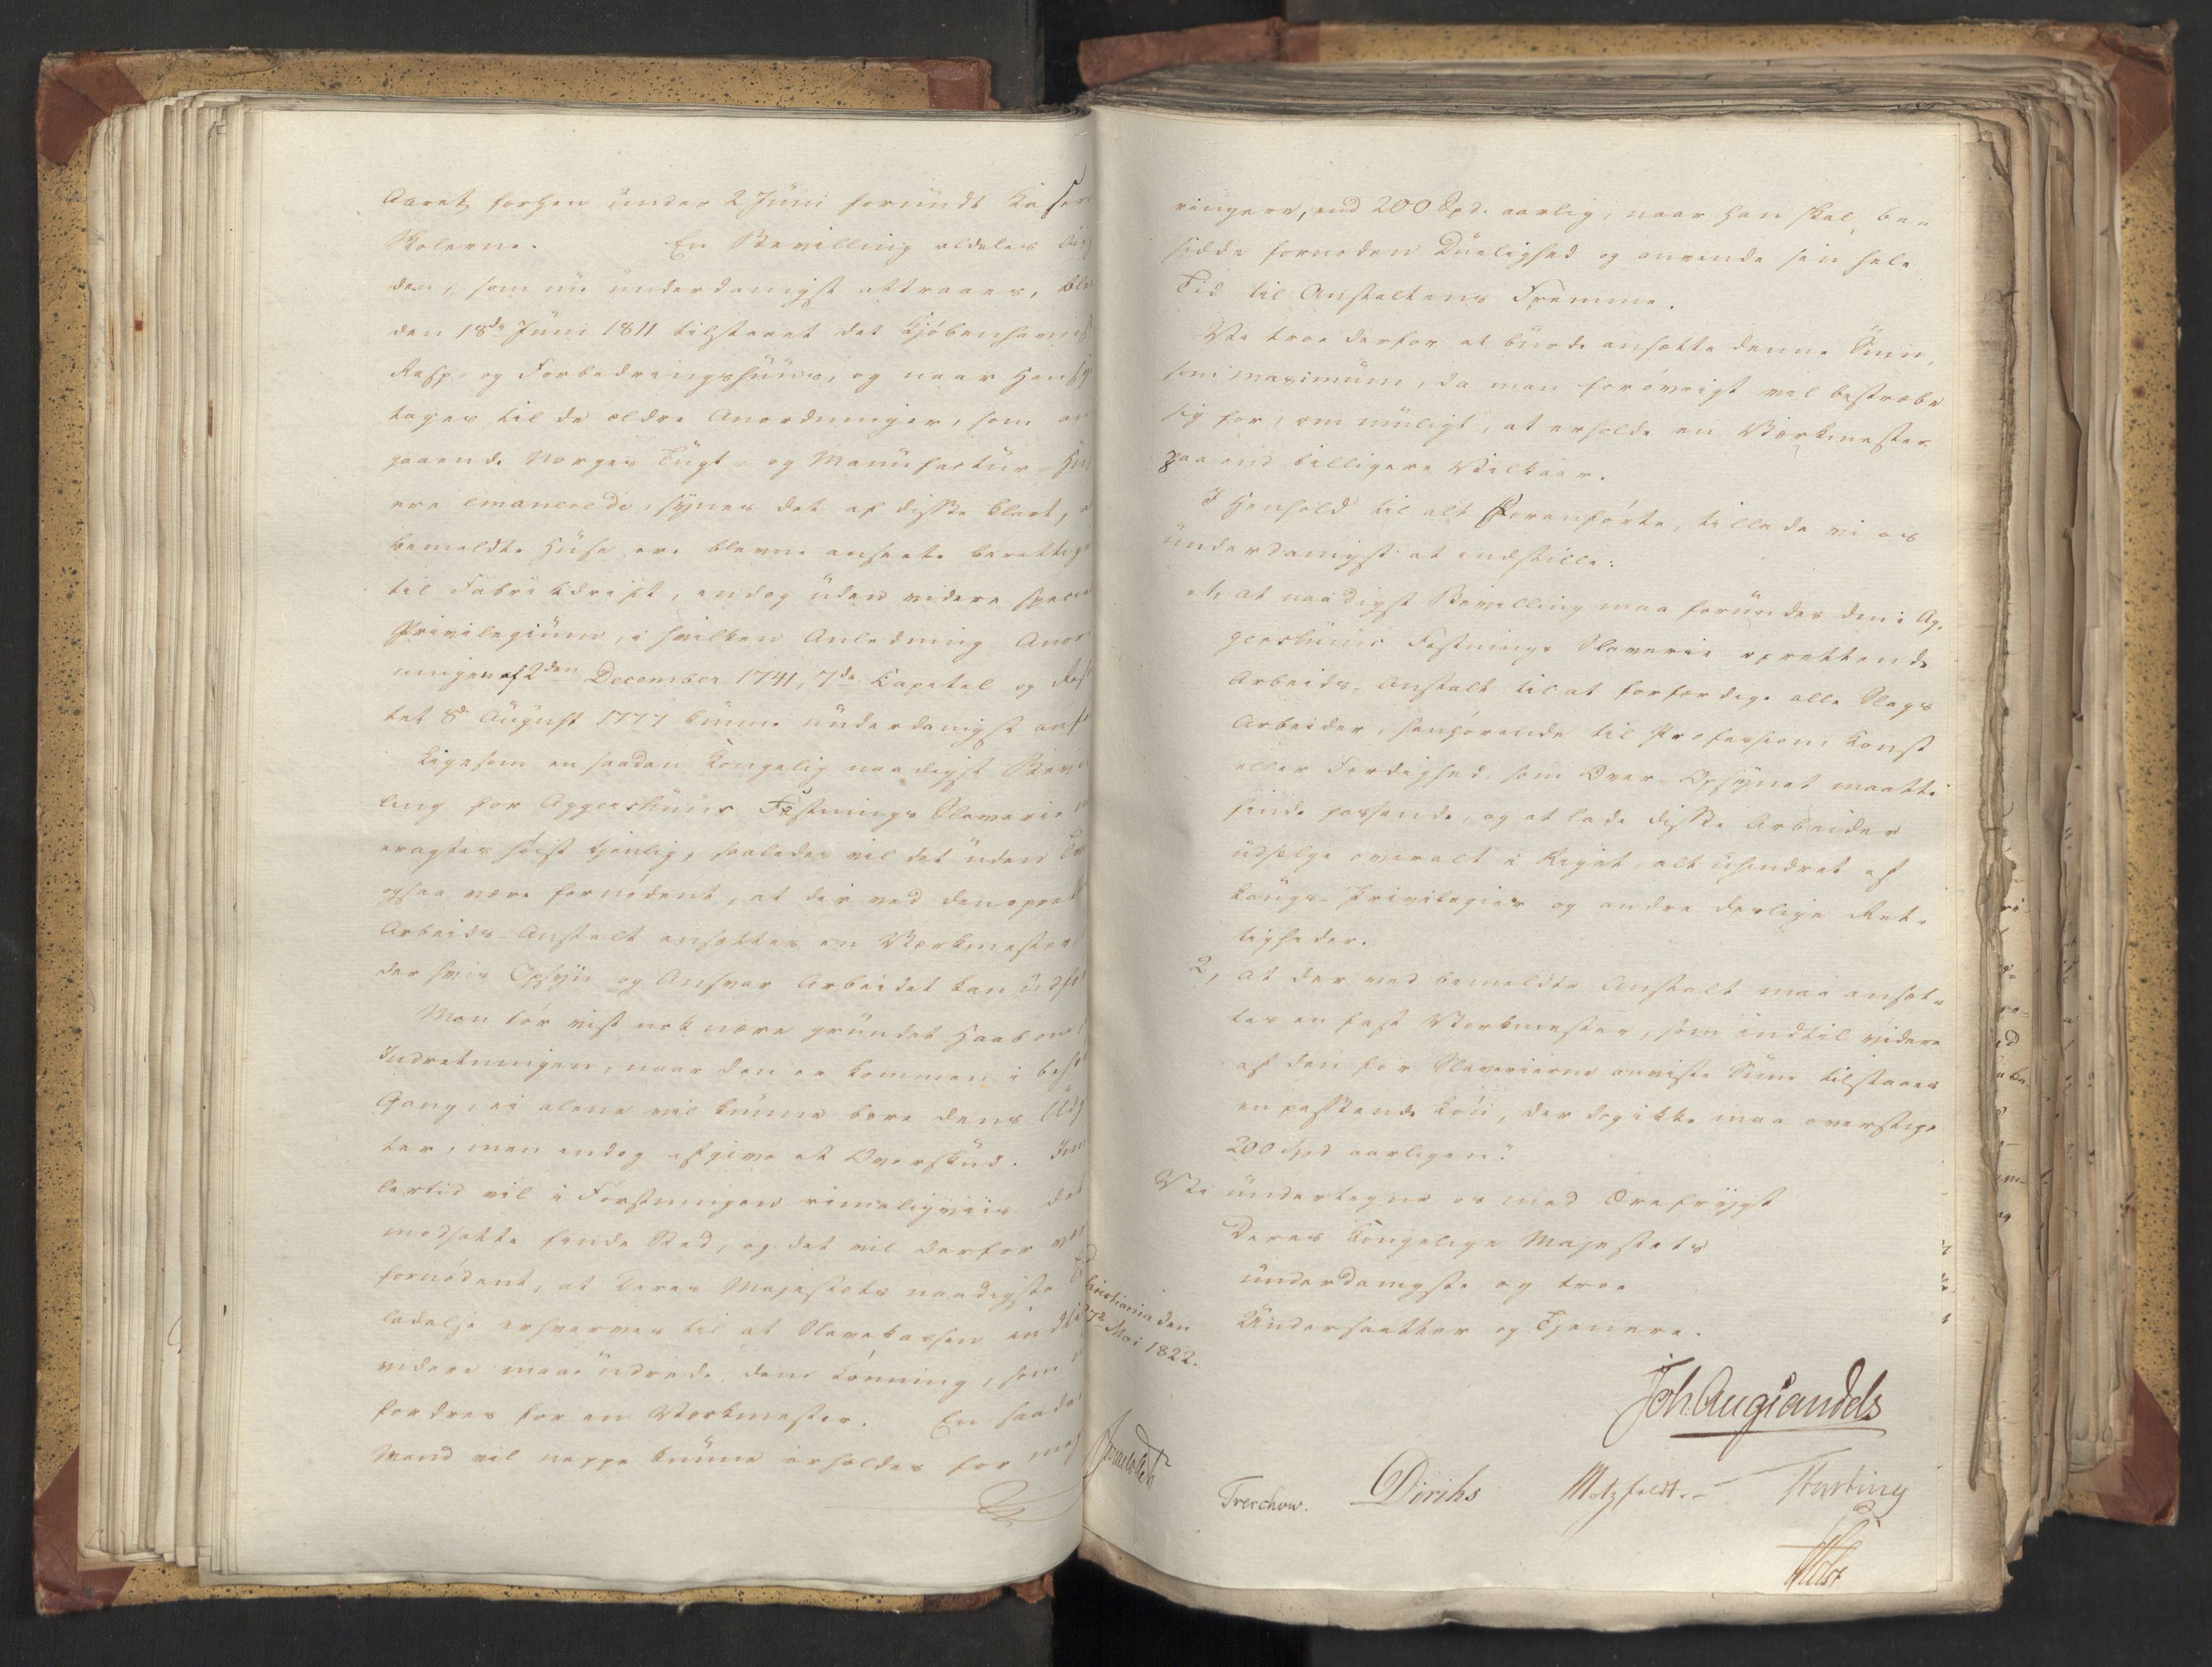 Aaret forhen under 2 Juni forundt
Skolerne. En Bevilling aldeles
den, som nu underdanigst attraaes,
den 18de Juni 1811 tilstaaet det Kjøbenhavns
Rasp- og Forbedringshuus, og naar
tages til de ældre Anordninger, som an
gaaende Norges Tugt- og Manufactur-
ere emanerede, synes det af disse klart,
bemeldte Huse ere blevne ansete
til Fabrikdrift, endog uden videre
Privilegium, i hvilken Anledning
ningen af 2den December 1741, 7de Capitel og
tet 8de August 1777 kunne underdanigst
Ligesom en saadan Kongelig naadigst
ling for Aggershuus Fæstnings Slaverie
eragtes høist tjenlig, saaledes vil det uden
ogsaa være fornødent, at der ved den
Arbeids-Anstalt ansættes en Værkmester
der hvis Opsyn og Ansvar Arbeidet kan
Man tør vist nok nære grundet Haab om
Indretningen, naar den er kommen i
Gang, ei alene vil kunne bære dens
ter, men endog afgive et Overskud.
lertid vil i Førstningen rimeligviis det
modsatte finde Sted, og det vil derfor
fornødent, at Deres Majestæts naadigste
ladelse erhverves til at Slavekassen
videre maae udrede den Lønning, som
fordres for en Værkmester. En
Mand vil neppe kunne erholdes for
ringere, end 200 Spd. aarlig, naar han skal be-
sidde fornøden Duelighed og anvende sin hele
Tid til Anstaltens Fremme.
Vi troe derfor at burde ansætte denne Sum,
som maximum, da man forøvrigt vil bestræbe
sig for, om muligt, at erholde en Værkmester
paa end billigere Vilkaar.
I Henhold til alt Foranførte, tillade vi os
underdanigst at indstille:
"1, at naadigst Bevilling maa forundes den i Ag-
gershuus Fæstnings Slaverie oprettende
Arbeids-Anstalt til at forfærdige alle Slags
Arbeider, henhørende til Profession, Konst
eller Færdighed som Over-Opsynet maatte
finde passende, og at lade disse Arbeider
udsælge overalt i Riget, alt uhindret af
Laugs-Privilegier og andre deslige Ret-
tigheder.
2, at der ved bemeldte Anstalt maa ansæt-
tes en fast Værkmester, som indtil videre
af den for Slaverierne anviste Sum tilstaaes
en passende Løn, der dog ikke maa overstige
200 Spd aarligen."
Vi undertegne os med Ærefrygt
Deres Kongelige Majestæts
underdanigste og troe
Undersaatter og Tjenere.
Christiania den
27de Mai 1822.
Joh. Aug: Sandels
Treschow. Diriks Motzfeldt. Fasting
Holst